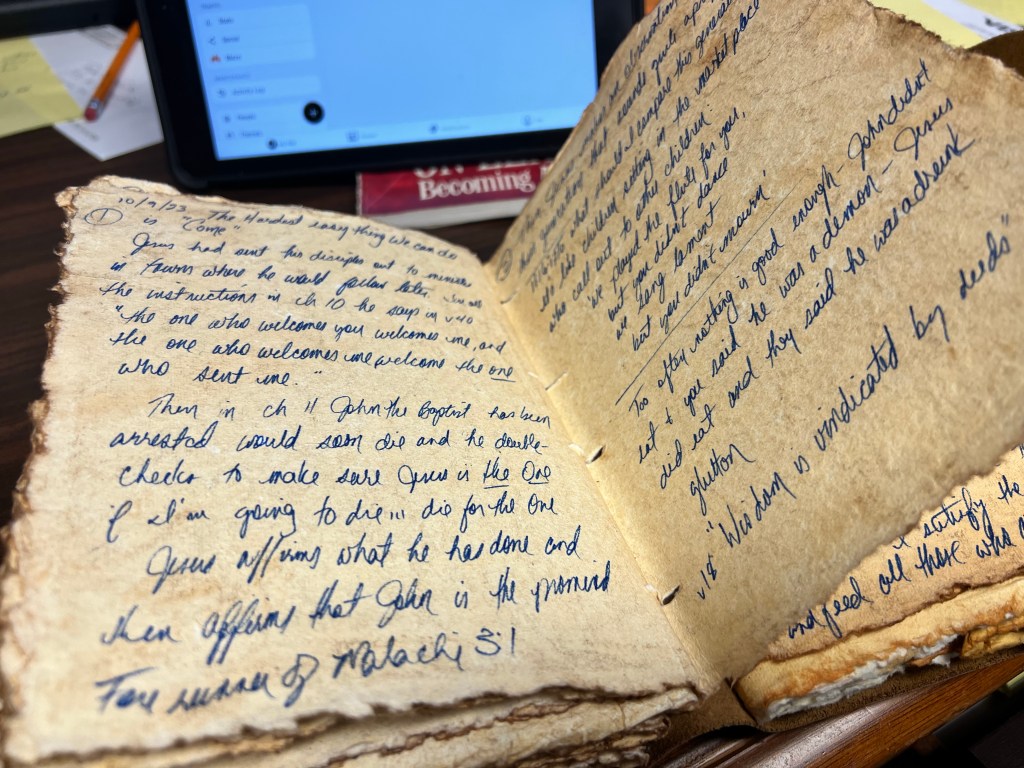 10/9/23 The Hardest easy thing We can do
① is "Come"
Jesus had sent his disciples out to minister
in Towns where he would follow later
the instructions in ch 10 he says in v 40
"the one who welcomes you welcomes me, and
the one who welcomes me welcome the one
who sent me."
Then in ch 11 John the Baptist has been
arrested would soon die and he double-
checks to make sure Jesus is the One
if I'm going to die... die for the One
Jesus affirms what he has done and
then affirms that John is the promised
Fore runner of Malachi 3:1
②
this generation that sounds quite
11:16 to what should I compare this generation
its like children sitting in the market place
who call out to other children
'we played the flute for you,
but you didn't dance
we sang lament
but you didn't mourn'
Too often nothing is good enough - John didn't
eat & you said he was a demon - Jesus
did eat and they said he was a drunk
glutton
v 19 "Wisdom is vindicated by deeds"
satisfy the
and feed all those who
Becoming